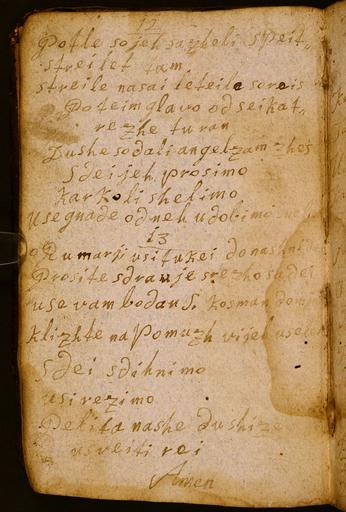 12
Potle so jeh sazheli speit,,
streilet tam
streile nasai leteile so rais
Po teim glavo od seikat,,
rezhe tu ran
Dushe so dali angelzam zhes
Sdei jeh prosimo
kar koli shelimo
Use gnade od neh udobimo
13
od u marji usi tukei donashni
Prosite sdrauje srezho sa dei
use vam bo dau S. Kosman
klizhte na Pomuzh vijeh
Sdei sdihnimo
usi rezimo
Pelita nashe dushize
usveiti rei
Amen